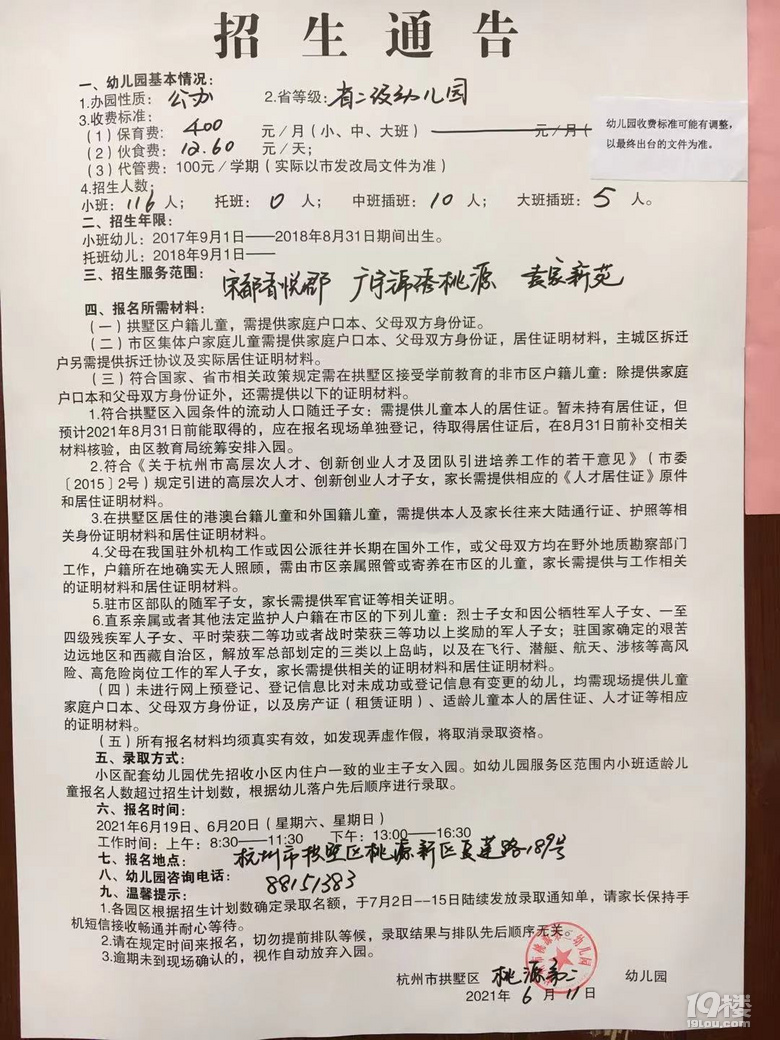 招生通告
一、幼儿园基本情况：
1.办园性质：公办 2.省等级：省二级幼儿园
3.收费标准：
（1）保育费：400 元／月（小、中、大班） 元／月（
（2）伙食费：12.60 元／天；
（3）代管费：100元／学期（实际以市发改局文件为准）
幼儿园收费标准可能有调整，
以最终出台的文件为准。
4.招生人数：
小班：116人； 托班：0人； 中班插班：10人； 大班插班：5人。
二、招生年限：
小班幼儿：2017年9月1日——2018年8月31日期间出生。
托班幼儿：2018年9月1日——
三、招生服务范围：宋都香悦郡 广宇锦绣桃源 袁家新苑
四、报名所需材料：
（一）拱墅区户籍儿童，需提供家庭户口本、父母双方身份证。
（二）市区集体户家庭儿童需提供家庭户口本、父母双方身份证，居住证明材料，主城区拆迁
户另需提供拆迁协议及实际居住证明材料。
（三）符合国家、省市相关政策规定需在拱墅区接受学前教育的非市区户籍儿童：除提供家庭
户口本和父母双方身份证外，还需提供以下的证明材料。
1.符合拱墅区入园条件的流动人口随迁子女：需提供儿童本人的居住证。暂未持有居住证，但
预计2021年8月31日前能取得的，应在报名现场单独登记，待取得居住证后，在8月31日前补交相关
材料核验，由区教育局统筹安排入园。
2.符合《关于杭州市高层次人才、创新创业人才及团队引进培养工作的若干意见》（市委
〔2015〕2号）规定引进的高层次人才、创新创业人才子女，家长需提供相应的《人才居住证》原件
和居住证明材料。
3.在拱墅区居住的港澳台籍儿童和外国籍儿童，需提供本人及家长往来大陆通行证、护照等相
关身份证明材料和居住证明材料。
4.父母在我国驻外机构工作或因公派往并长期在国外工作，或父母双方均在野外地质勘察部门
工作，户籍所在地确实无人照顾，需由市区亲属照管或寄养在市区的儿童，家长需提供与工作相关
的证明材料和居住证明材料。
5.驻市区部队的随军子女，家长需提供军官证等相关证明。
6.直系亲属或者其他法定监护人户籍在市区的下列儿童：烈士子女和因公牺牲军人子女、一至
四级残疾军人子女、平时荣获二等功或者战时荣获三等功以上奖励的军人子女；驻国家确定的艰苦
边远地区和西藏自治区，解放军总部划定的三类以上岛屿，以及在飞行、潜艇、航天、涉核等高风
险、高危险岗位工作的军人子女，家长需提供相关的证明材料和居住证明材料。
（四）未进行网上预登记、登记信息比对未成功或登记信息有变更的幼儿，均需现场提供儿童
家庭户口本、父母双方身份证，以及房产证（租赁证明）、适龄儿童本人的居住证、人才证等相应
的证明材料。
（五）所有报名材料均须真实有效，如发现弄虚作假，将取消录取资格。
五、录取方式：
小区配套幼儿园优先招收小区内住户一致的业主子女入园。如幼儿园服务区范围内小班适龄儿
童报名人数超过招生计划数，根据幼儿落户先后顺序进行录取。
六、报名时间：
2021年6月19日、6月20日（星期六、星期日）
工作时间：上午：8:30——11:30 下午：13:00——16:30
七、报名地点：杭州市拱墅区桃源新区夏莲路189号
八、幼儿园咨询电话：88151383
九、温馨提示：
1.各园区根据招生计划数确定录取名额，于7月2日--15日陆续发放录取通知单，请家长保持手
机短信接收畅通并耐心等待。
2.请在规定时间来报名，切勿提前排队等候，录取结果与排队先后顺序无关。
3.逾期未到现场确认的，视作自动放弃入园。
杭州市拱墅区 桃源第二 幼儿园
2021年 6 月 11 日
19楼
19lou.com